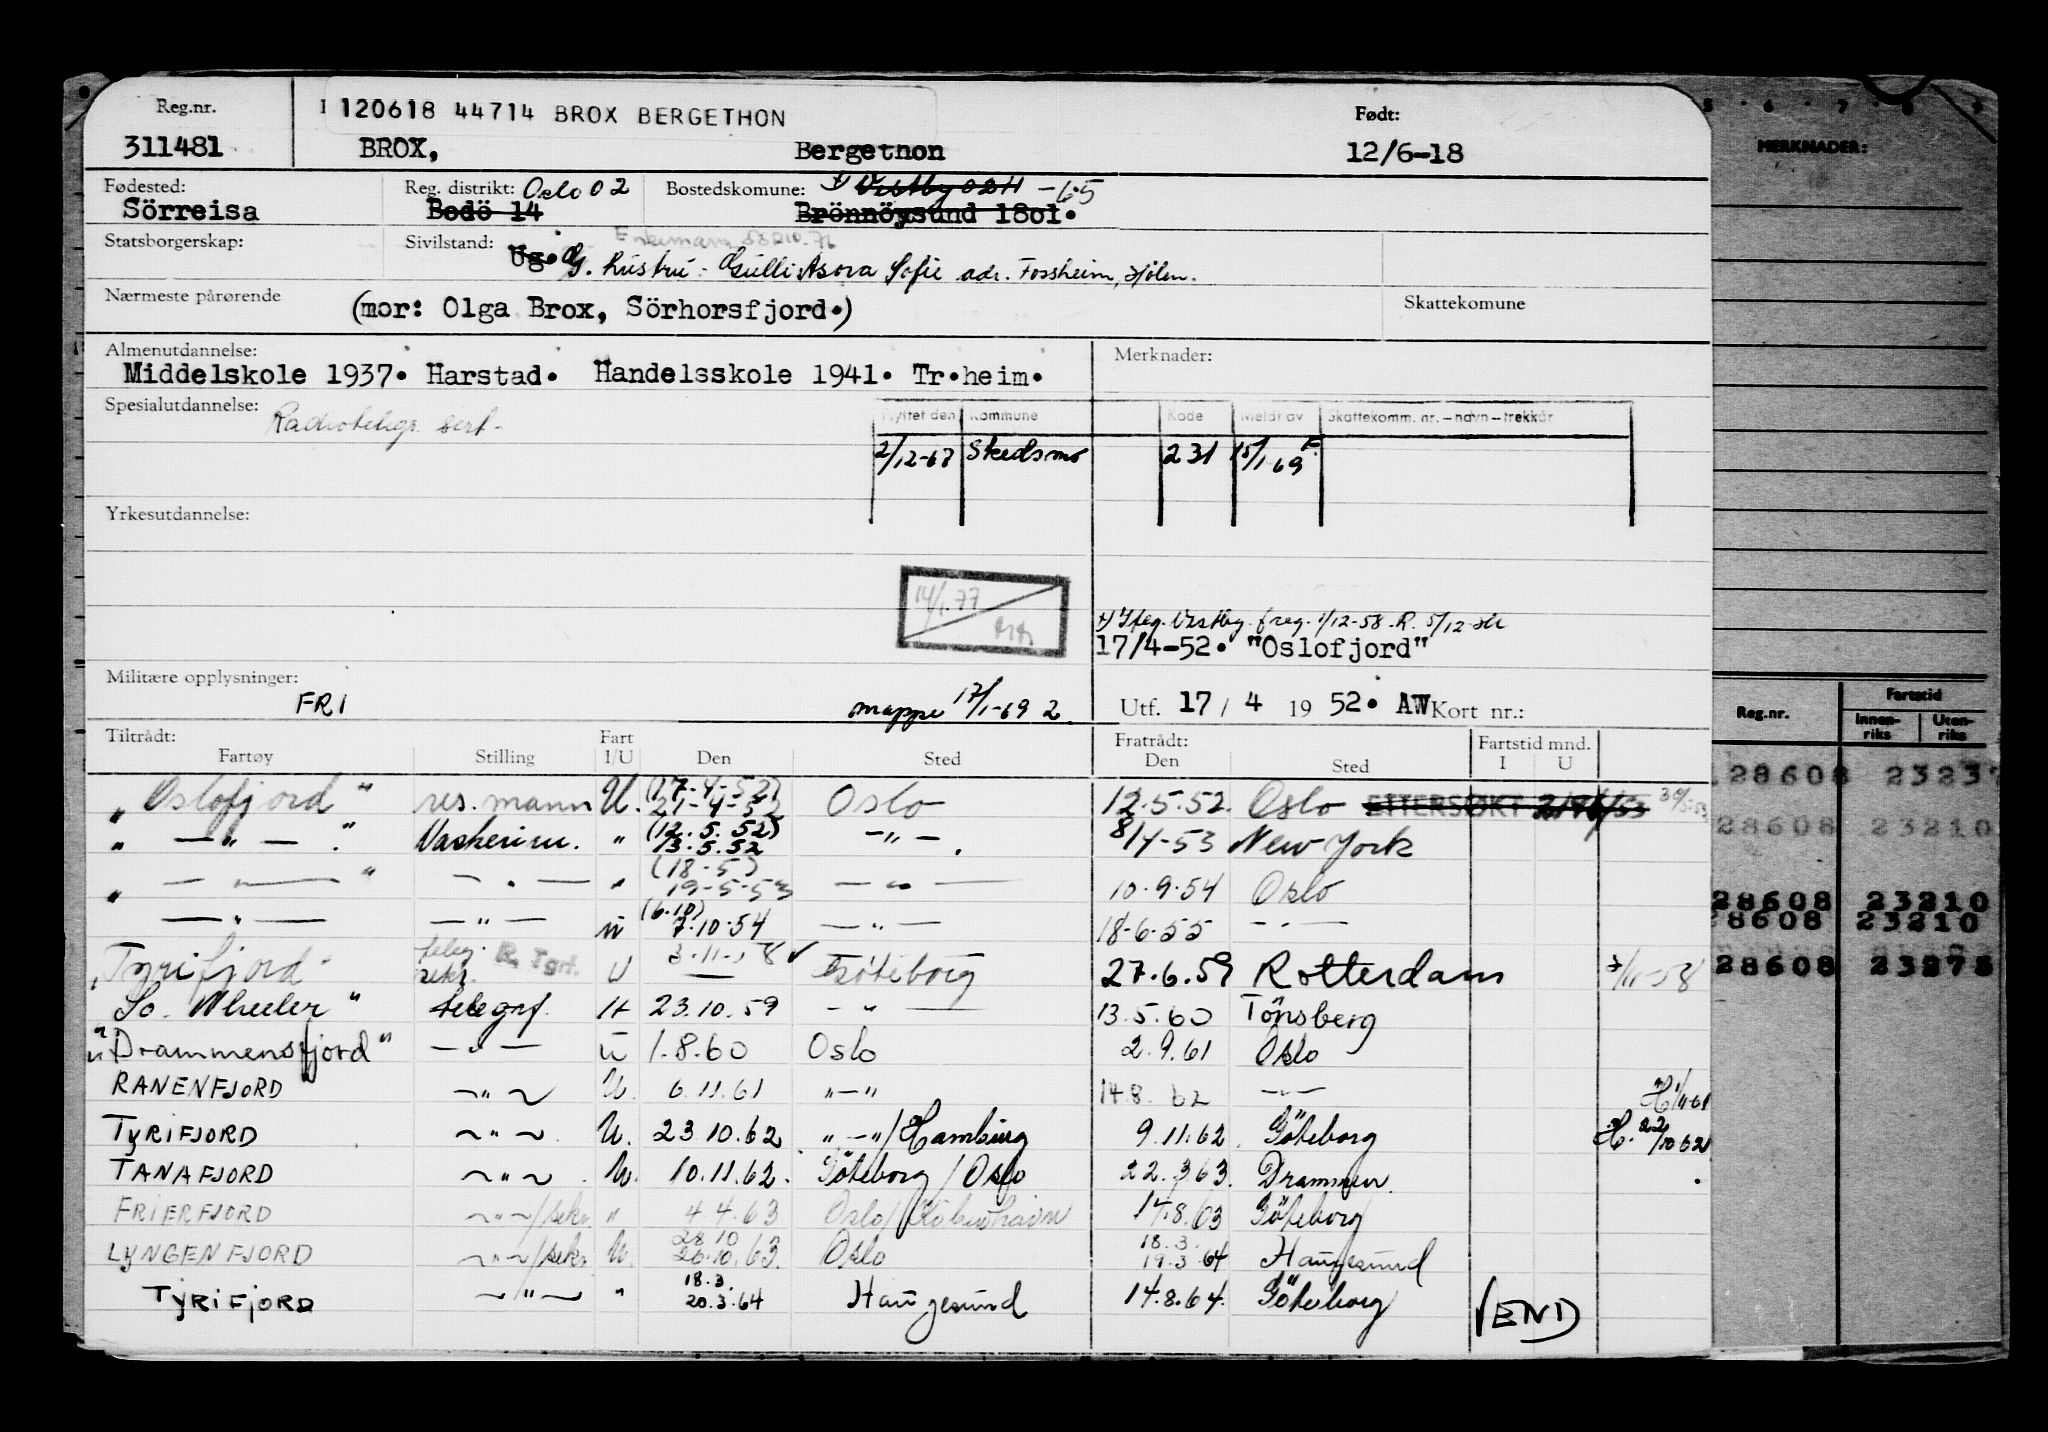 Reg.nr. 120618 44714 BROX BERGETHON Født:
311481 BROX, Bergethon 12/6-18
Fødested: Reg. distrikt: Oslo 02 Bostedskomune: Vestby 0211 -65
Sörreisa Bodö 14 Brönnöysund 1801.
Statsborgerskap: Sivilstand: Enkemann
Ug. G. Hustru: Gulli Asora Sofie adr. Fossheim,
Nærmeste pårørende (mor: Olga Brox, Sörhorsfjord.) Skattekomune
Almenutdannelse: Merknader:
Middelskole 1937. Harstad. Handelsskole 1941. Tr.heim.
Spesialutdannelse: Radiotelegr. sert.
Flyttet den Kommune Kode Meldt av Skattekomm. nr. – navn – trekkår
2/12-68 Skedsmo 231 15/1 69 F.
Yrkesutdannelse:
14/1.77
Vestby freg. 1/12-58 R. 5/12
17/4-52. "Oslofjord"
Militære opplysninger: FRI mappe 17/1-69 2 Utf. 17 / 4 19 52. AW Kort nr.:
Tiltrådt: Fart Fratrådt: Fartstid mnd.
Fartøy Stilling I/U Den Sted Den Sted I U
"Oslofjord" res. mann U. (17-4-52) 21-4-52 Oslo 12.5.52. Oslo ETTERSØKT
" — " — " Vaskerim. " (12.5.52) 13.5.52 — " — 8/4-53 New York
" — " — " — " — " (18-5) 19-5-53 — " — 10.9.54 Oslo
— " — — " — U (6.10) 7.10.54 — " — 18-6-55 — " —
"Tyrifjord" teleg. sekr. R. Tgrf. U 3.11.58 Göteborg 27.6.59 Rotterdam
So. Wheeler" telegrf. H 23.10.59 — " — 13.5.60 Tönsberg
"Drammensfjord" — " — U 1.8.60 Oslo 2.9.61 Oslo
RANENFJORD — " — U. 6.11.61 " — " 14.8.62 — " —
TYRIFJORD — " — U. 23.10.62 " — " / Hamburg 9.11.62. Göteborg H. 22/10 62
TANAFJORD — " — U. 10.11.62. Göteborg / Oslo 22.3.63. Drammen.
FRIERFJORD — " — /sekr. " 4.4.63 Oslo / Köbenhavn 14.8.63 Göteborg
LYNGENFJORD — " — /sekr. U. 28.10 26.10.63. Oslo 18.3. 19.3.64 Haugesund
TYRIFJORD — " — " 18.3. 20.3.64 Haugesund 14.8.64. Göteborg VEND
MERKNADER:
Reg.nr. Fartstid
Innen-riks Uten-riks
28608 23237
28608 23210
28608 23210
28608 23210
28608 23273